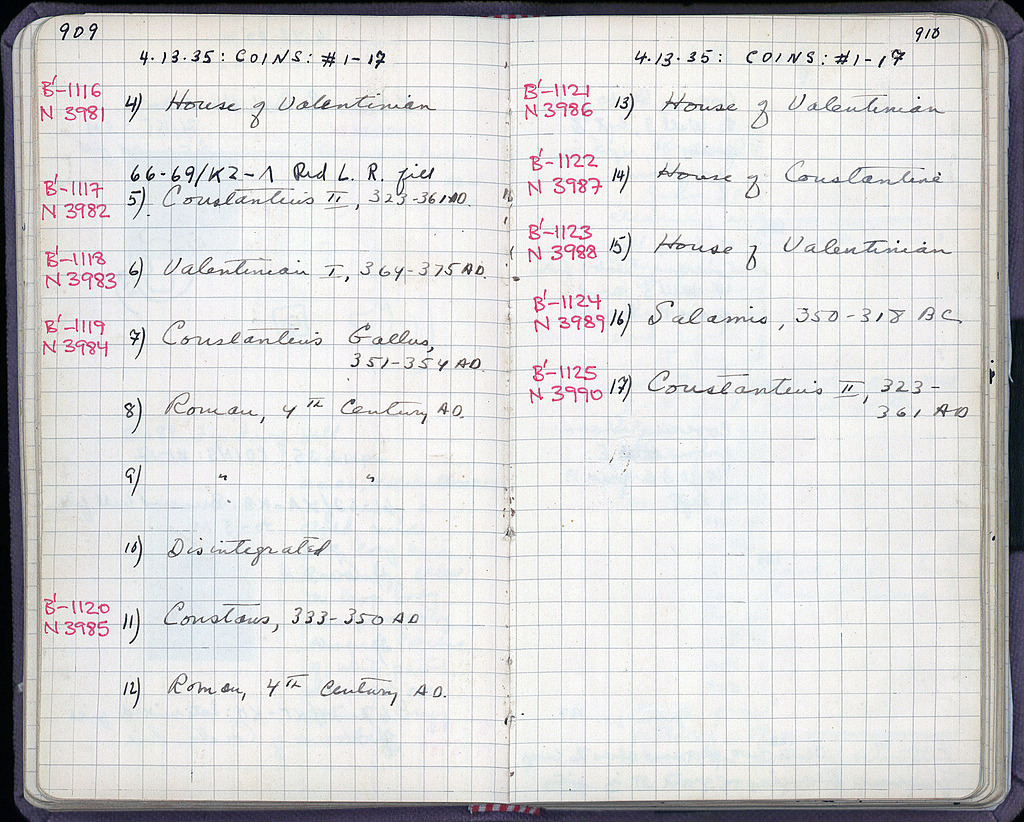 909
4.13.35: COINS: #1-17
B'-1116
N 3981
4) House of Valentinian
66-69/KZ-Λ Red L. R. fill
B'-1117
N 3982
5) Constantius II, 323-361 AD.
B'-1118
N 3983
6) Valentinian I, 364-375 AD.
B'-1119
N 3984
7) Constantius Gallus,
351-354 AD.
8) Roman, 4TH Century AD.
9) " "
10) Disintegrated
B'-1120
N 3985
11) Constans, 333-350 AD
12) Roman, 4TH Century AD.
910
4.13.35: COINS: #1-17
B'-1121
N 3986
13) House of Valentinian
B'-1122
N 3987
14) House of Constantine
B'-1123
N 3988
15) House of Valentinian
B'-1124
N 3989
16) Salamis, 350-318 BC
B'-1125
N 3990
17) Constantius II, 323-
361 AD